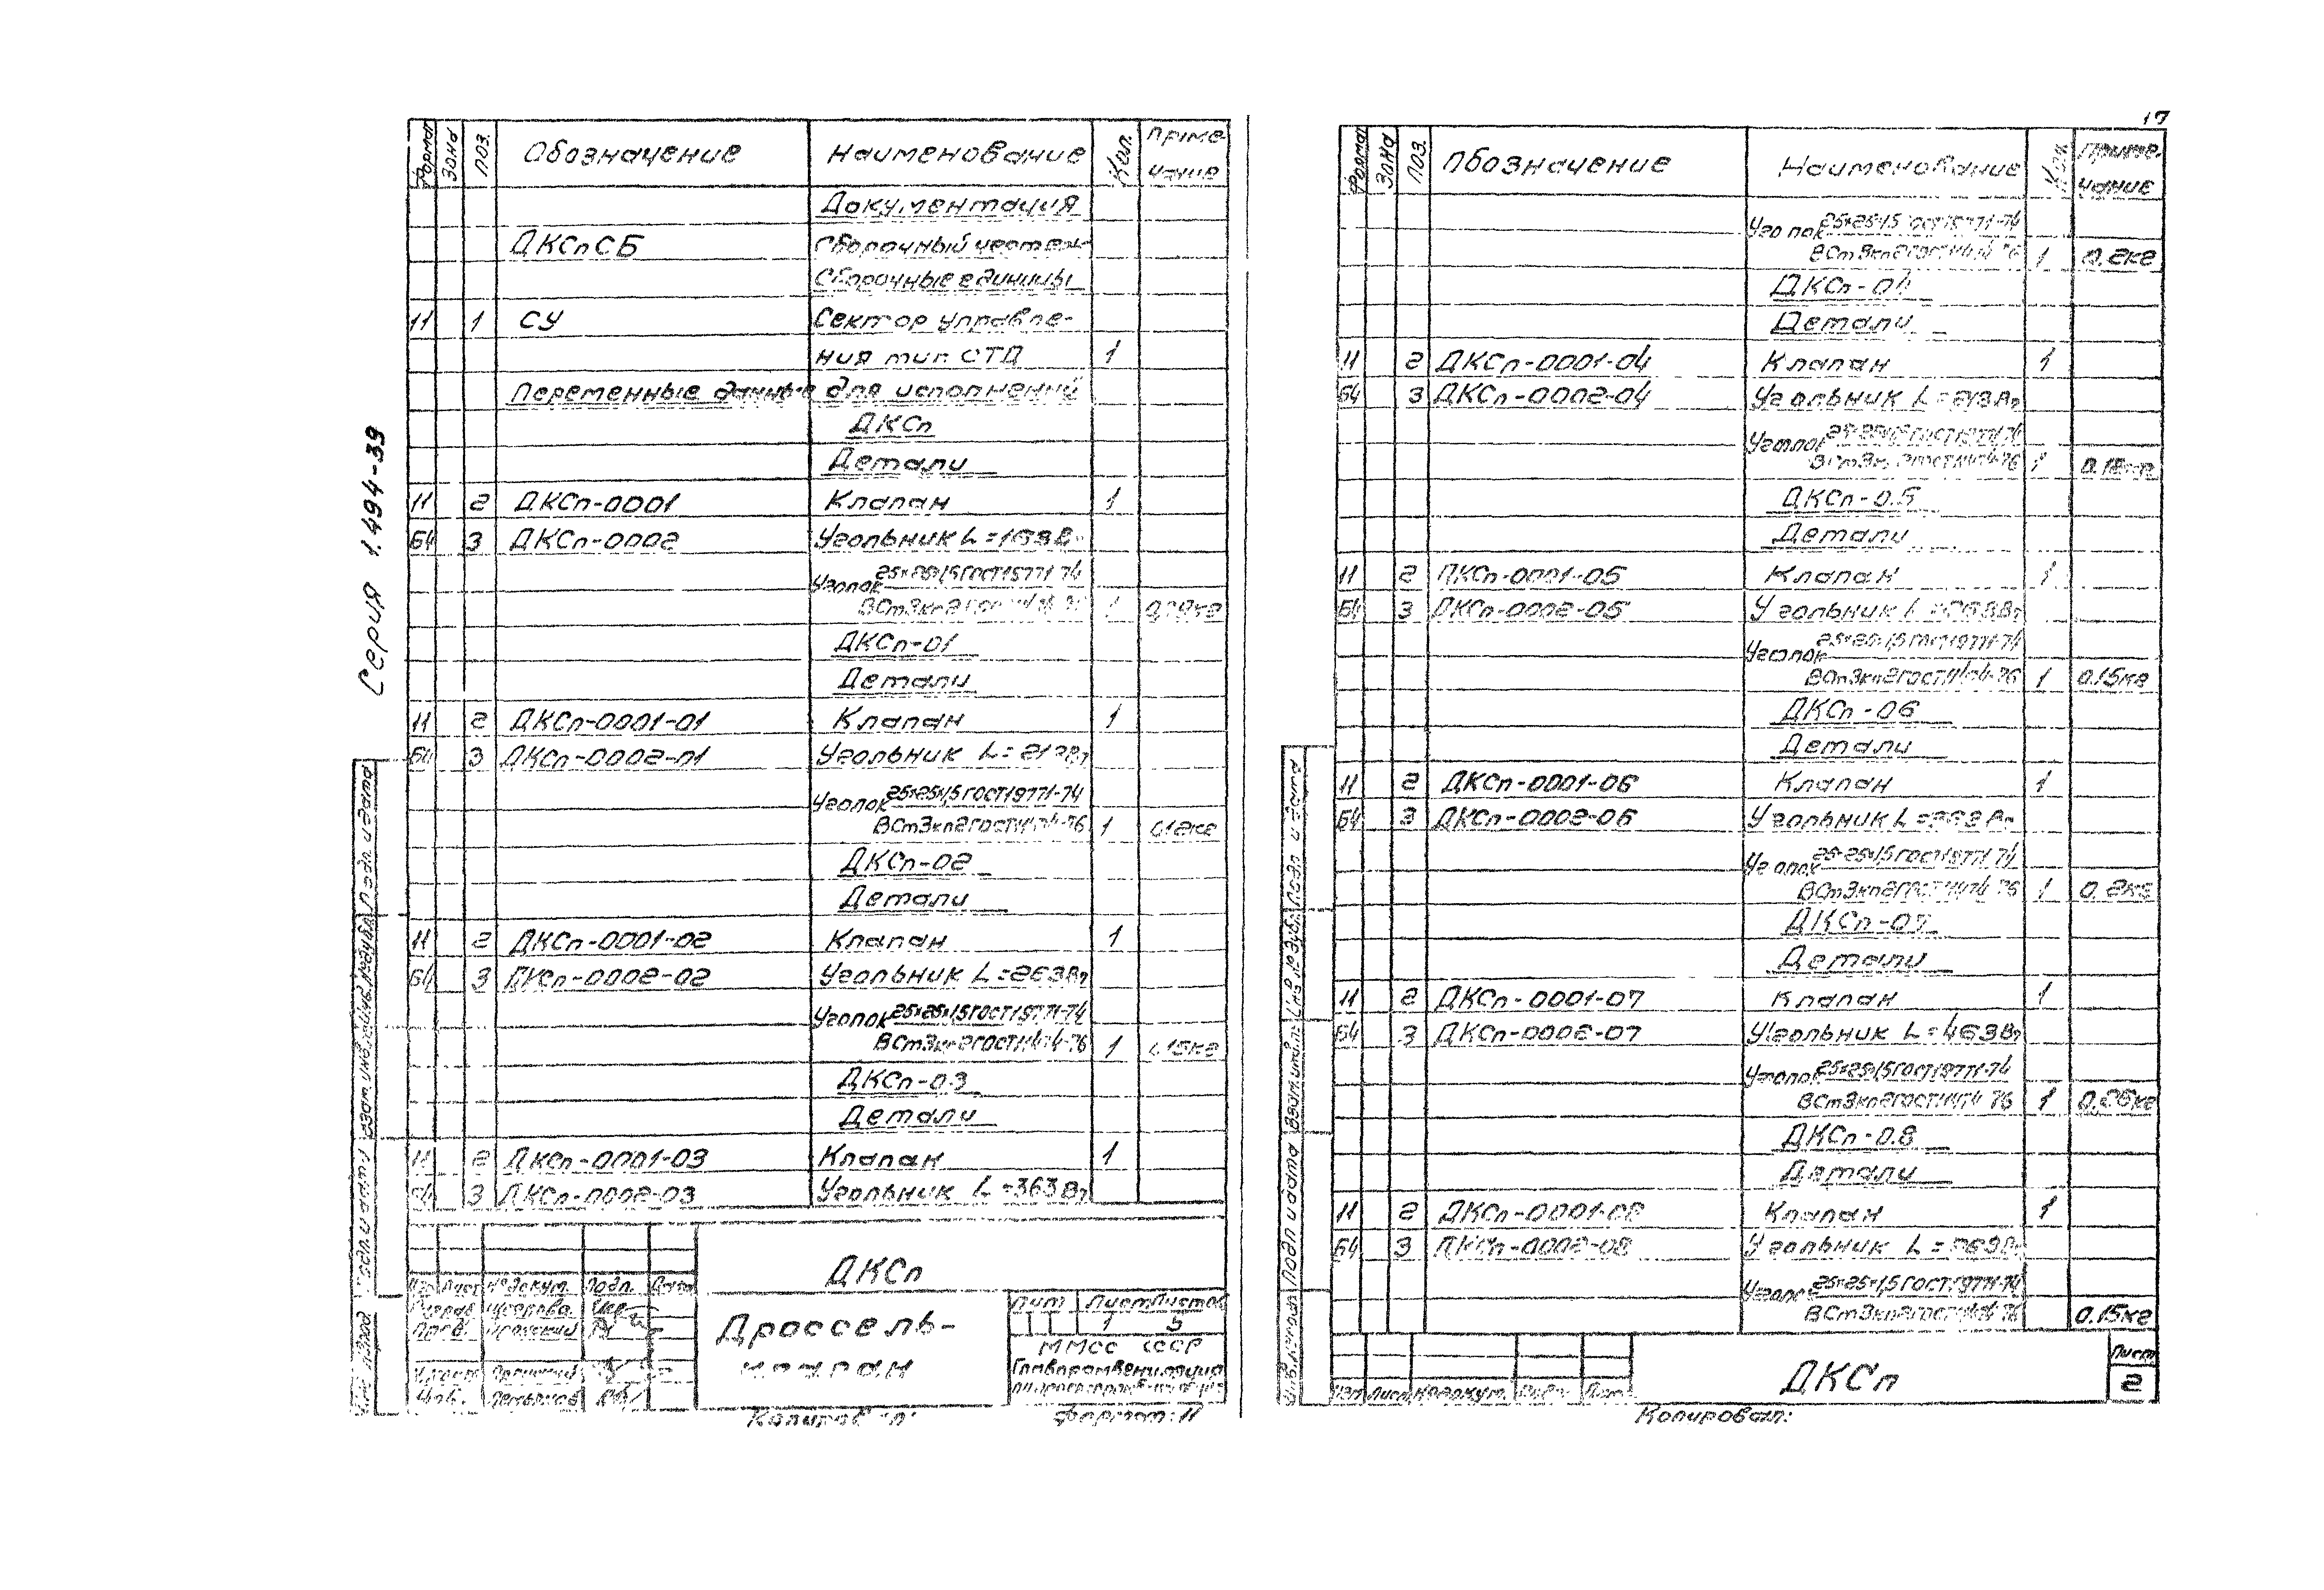 Серия 1.494-39
Формат Зона Поз. Обозначение Наименование Кол. Приме-
чание
Документация
ДКСп СБ Сборочный чертеж
Сборочные единицы
11 1 СУ Сектор управле-
ния тип СТД 1
Переменные данные для исполнений
ДКСп
Детали
11 2 ДКСп-0001 Клапан 1
Б4 3 ДКСп-0002 Угольник L=163
Уголок 25×25×1,5 ГОСТ 19771-74
ВСт3кп2 1
ДКСп-01
Детали
11 2 ДКСп-0001-01 Клапан 1
Б4 3 ДКСп-0002-01 Угольник L=
Уголок 25×25×1,5 ГОСТ 19771-74
ВСт3кп2 ГОСТ 11474-76 1 0.12кг
ДКСп-02
Детали
11 2 ДКСп-0001-02 Клапан 1
Б4 3 ДКСп-0002-02 Угольник L=263Вп
Уголок 25×25×1,5 ГОСТ 19771-74
ВСт3кп2 ГОСТ 11474-76 1 0.15кг
ДКСп-03
Детали
11 2 ДКСп-0001-03 Клапан 1
Б4 3 ДКСп-0002-03 Угольник L=363Вп
ДКСп
Изм Лист № докум. Подп. Дата
Дроссель-
клапан
Лит Лист Листов
1 5
ММСС СССР
Главпромвентиляция
Копировал: Формат: 11
17
Формат Зона Поз. Обозначение Наименование Кол. Приме-
чание
Уголок 25×25×1,5 ГОСТ 19771-74
ВСт3кп2 ГОСТ 11474-76 1 0.2кг
ДКСп-04
Детали
11 2 ДКСп-0001-04 Клапан 1
Б4 3 ДКСп-0002-04 Угольник L=213Вп
Уголок 25×25×1,5 ГОСТ 19771-74
ВСт3кп2 ГОСТ 11474-76 1
ДКСп-05
Детали
11 2 ДКСп-0001-05 Клапан 1
Б4 3 ДКСп-0002-05 Угольник L=263Вп
Уголок 25×25×1,5 ГОСТ 19771-74
ВСт3кп2 ГОСТ 11474-76 1 0.15кг
ДКСп-06
Детали
11 2 ДКСп-0001-06 Клапан 1
Б4 3 ДКСп-0002-06 Угольник L=
Уголок 25×25×1,5 ГОСТ 19771-74
ВСт3кп2 ГОСТ 11474-76 1 0.2кг
ДКСп-07
Детали
11 2 ДКСп-0001-07 Клапан 1
Б4 3 ДКСп-0002-07 Угольник L=463Вп
Уголок 25×25×1,5 ГОСТ 19771-74
ВСт3кп2 ГОСТ 11474-76 1 0.26кг
ДКСп-08
Детали
11 2 ДКСп-0001-08 Клапан 1
Б4 3 ДКСп-0002-08 Угольник L=
Уголок 25×25×1,5 ГОСТ 19771-74
ВСт3кп2 ГОСТ 11474-76 0.15кг
Изм Лист № докум. Подп. Дата
ДКСп
Лист
2
Копировал: